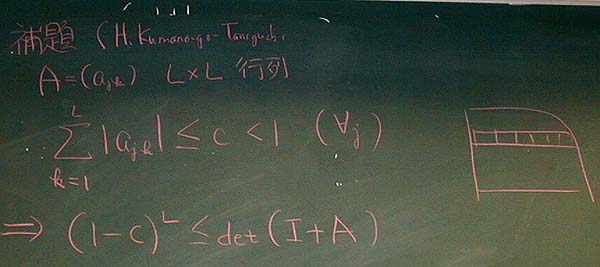 補題 (H. Kumano-go-Taniguchi,
A=(a_{jk}) L×L 行列
\sum_{k=1}^{L} |a_{jk}| ≤ c < 1 (∀j)
⇒ (1-c)^L ≤ det(I+A)